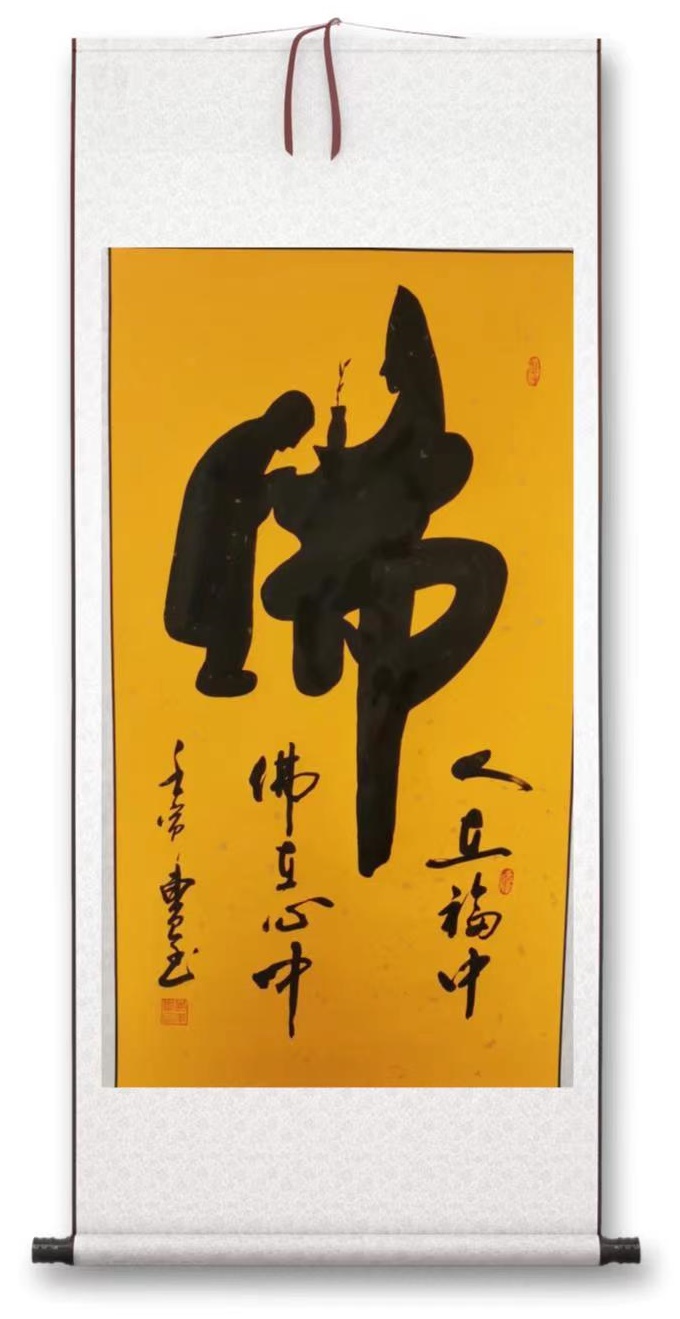 佛
人在福中
佛在心中